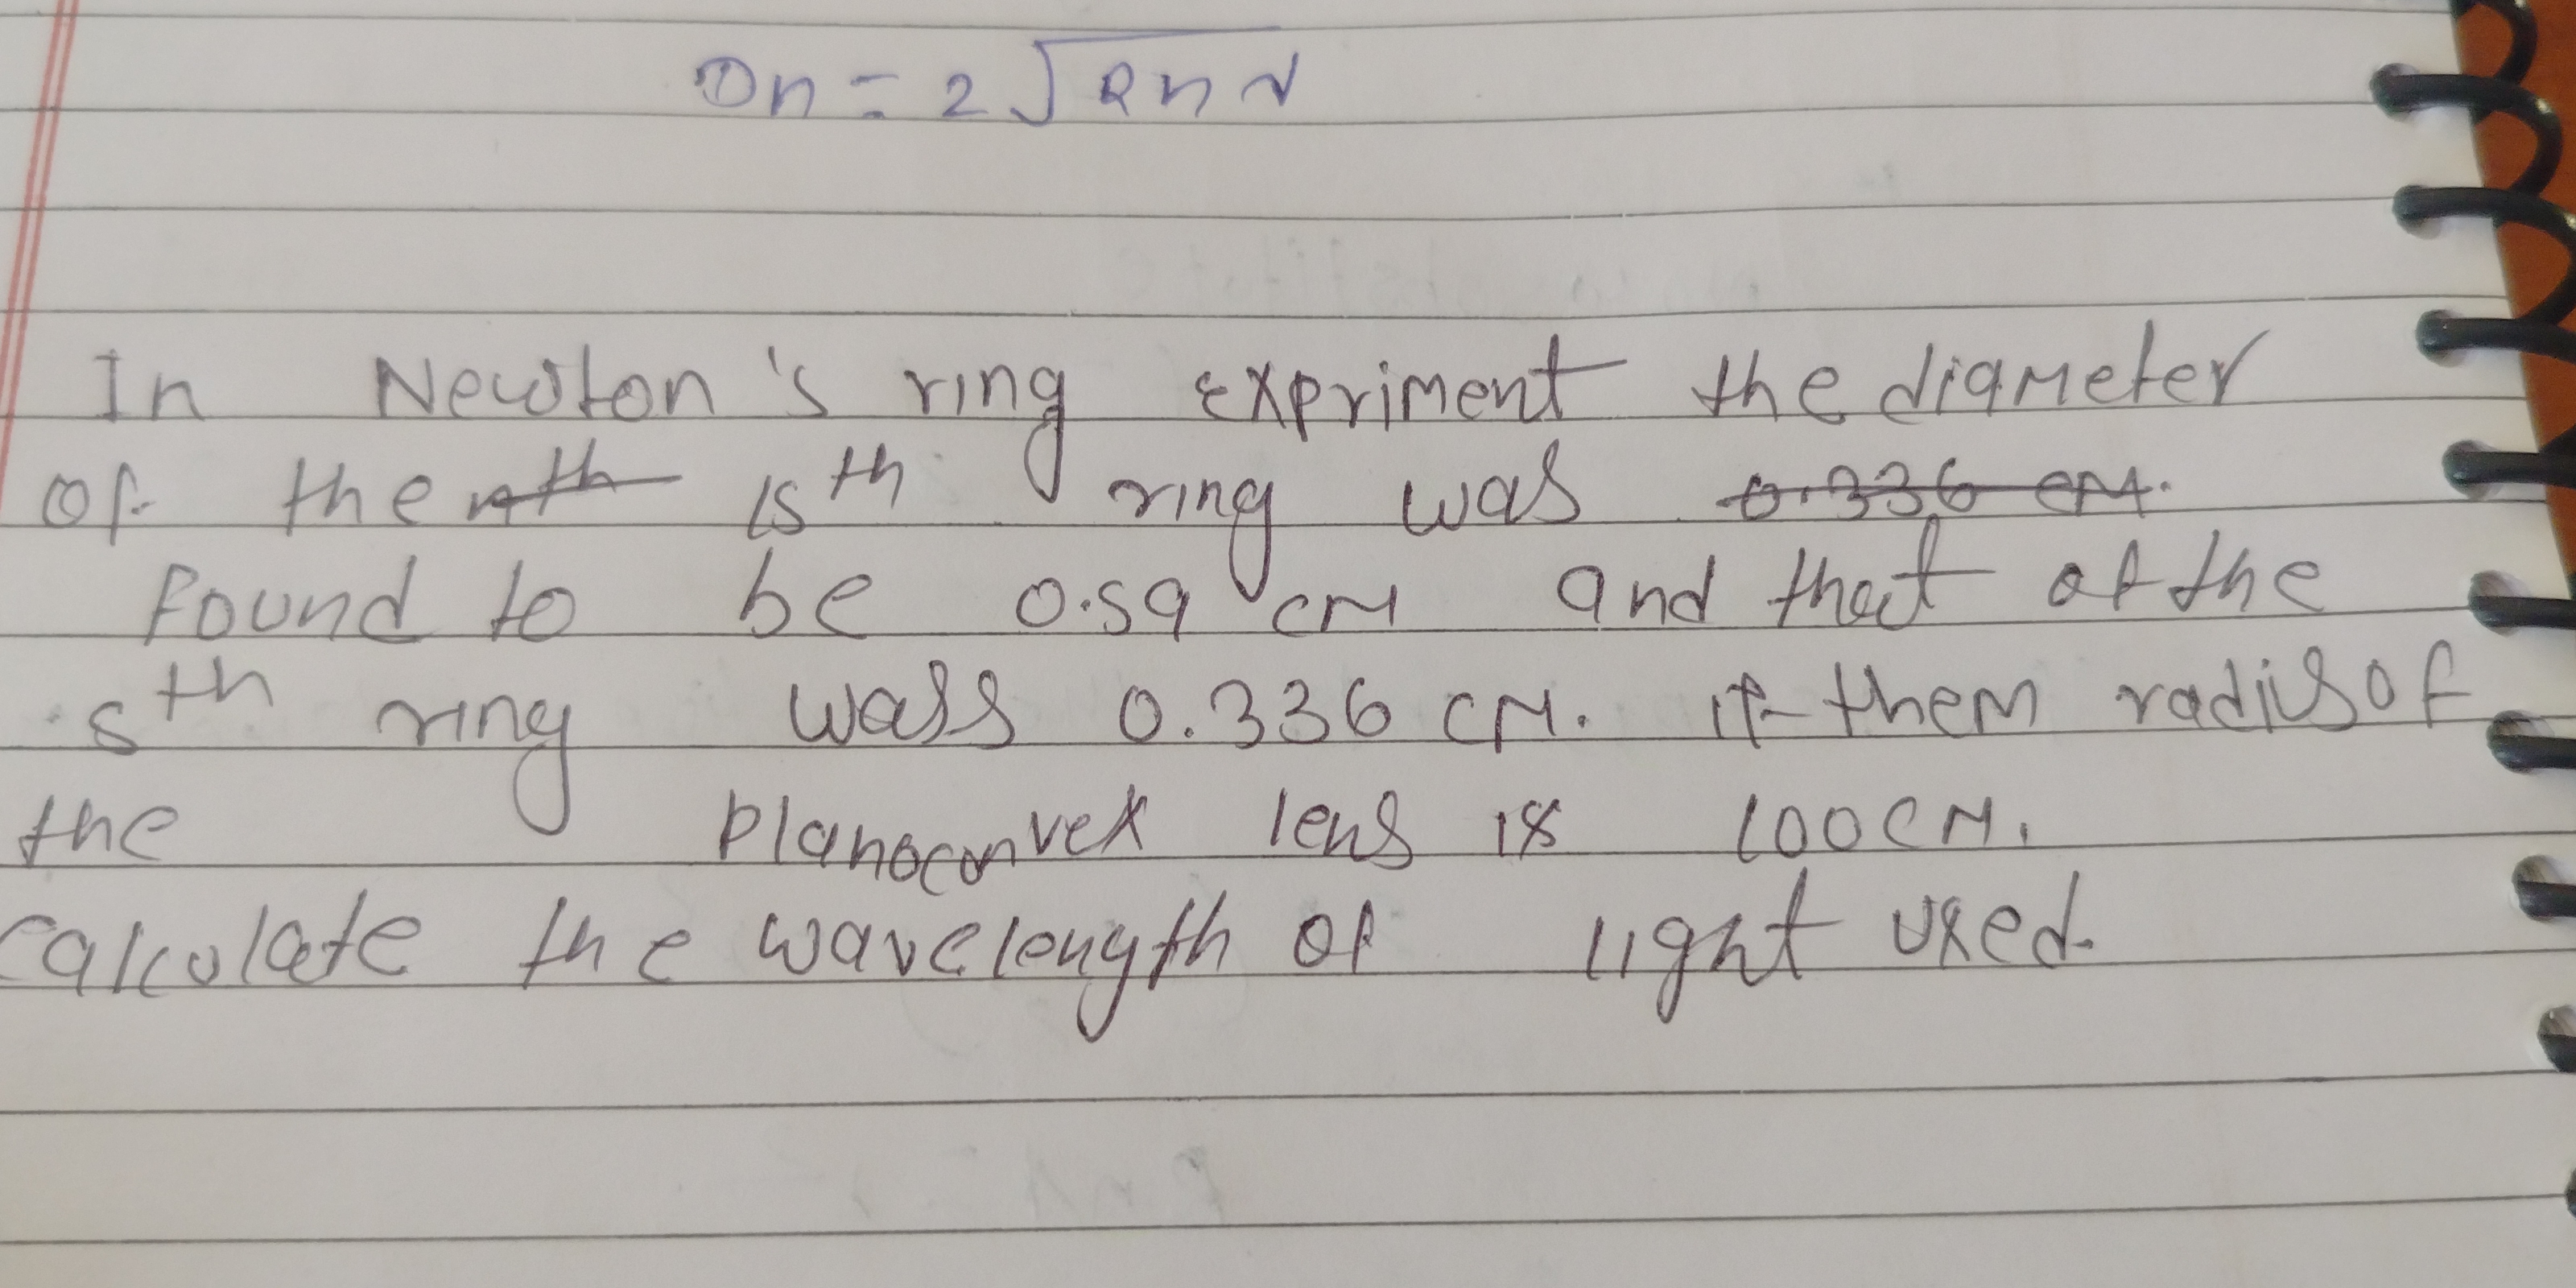 Dn = 2√Rnλ
In Newton's ring expriment the diameter
of the nth 15th ring was 0.336 cm.
found to be 0.59 cm and that of the
5th ring wass 0.336 cm. if them radius of
the planoconvex lens is 100cm.
calculate the wavelength of light used.